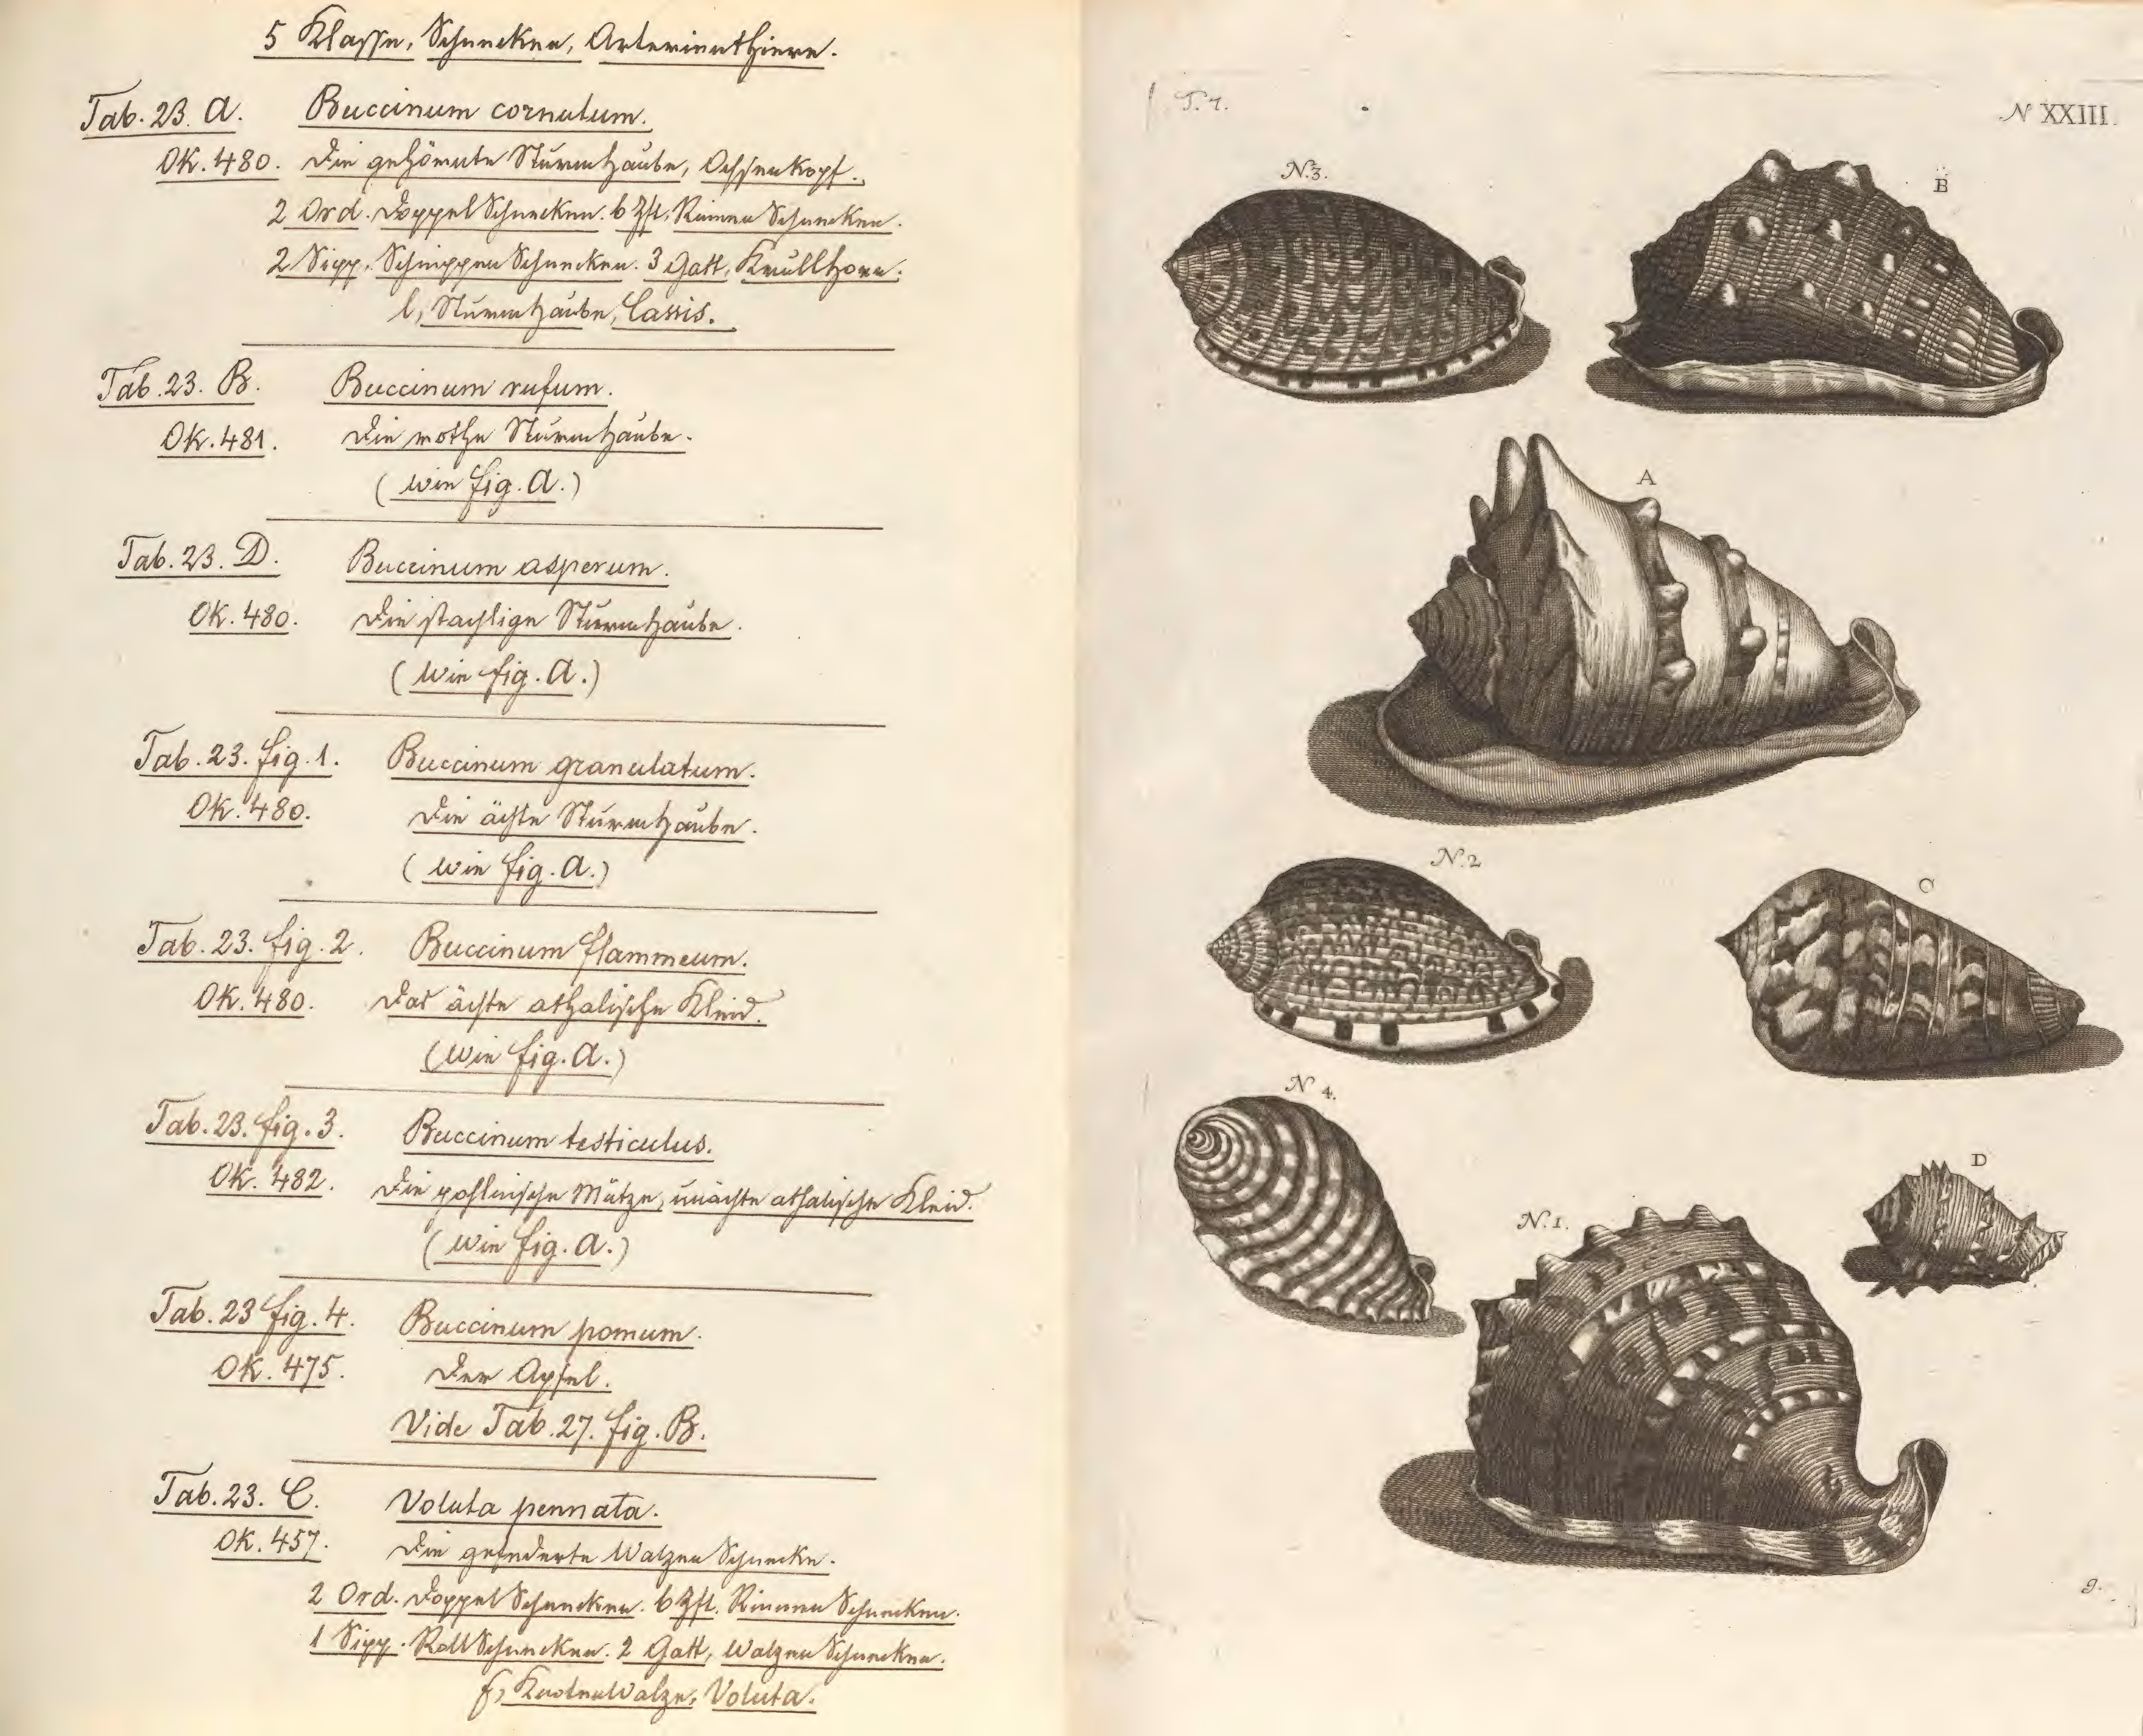 5 Klasse, Schnecken, Arterienthiere.
Tab. 23. A. Buccinum cornutum.
OK. 480. Die gehörnte Sturmhaube, Ochsenkopf.
2 Ord. Doppel Schnecken. 6 Zft. Rinnen Schnecken.
2 Sipp. Schnippen Schnecken. 3 Gatt, Krullhorn.
l, Sturmhaube, Cassis.
Tab. 23. B. Buccinum rufum.
OK. 481. Die rothe Sturmhaube.
(wie fig. A.)
Tab. 23. D. Buccinum asperum.
OK. 480. Die stachlige Sturmhaube.
(wie fig. A.)
Tab. 23. fig. 1. Buccinum granulatum.
OK. 480. Die ächte Sturmhaube.
(wie fig. A.)
Tab. 23. fig. 2. Buccinum flammeum.
OK. 480. Das ächte athalische Kleid.
(wie fig. A.)
Tab. 23. fig. 3. Buccinum testiculus.
OK. 482. Die pohlnische Mütze, unächte athalische Kleid.
(wie fig. A.)
Tab. 23 fig. 4. Buccinum pomum.
OK. 475. Der Apfel.
Vide Tab. 27. fig. B.
Tab. 23. C. Voluta pennata.
OK. 457. Die gefederte Walzen Schnecke.
2 Ord. Doppel Schnecken. 6 Zft. Rinnen Schnecken.
1 Sipp. Roll Schnecken. 2 Gatt, Walzen Schnecken.
f, Knoten Walze, Voluta.
T. 7.
N XXIII.
N. 3.
B
A
N. 2
C
N 4.
D
N. 1.
9.